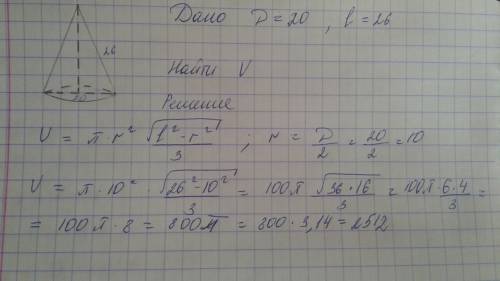 Дано D = 20 , l = 26
26
20
Найти V
Решение
V = π · r² √(l² - r²) / 3 ; r = D/2 = 20/2 = 10
V = π · 10² √(26² - 10²) / 3 = 100π √(36 * 16) / 3 = 100π · 6 · 4 / 3 =
= 100π · 8 = 800π = 800 · 3,14 = 2512